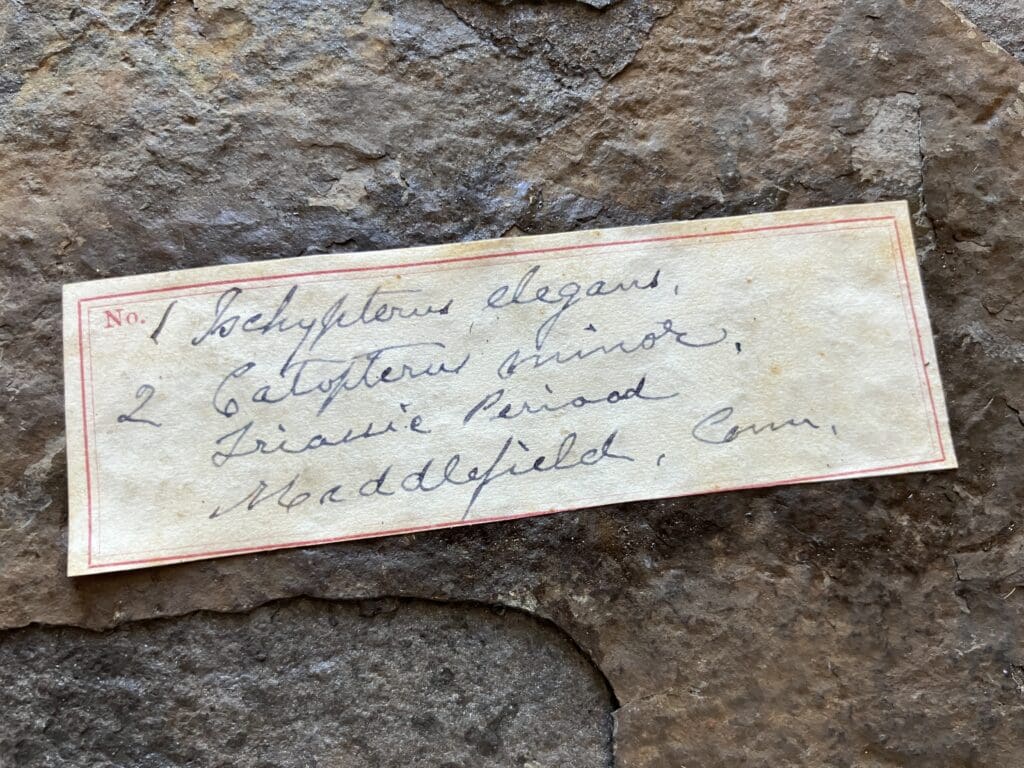 No. 1 Ischypterus elegans.
2 Catopterus minor.
Triassic Period
Middlefield, Conn.